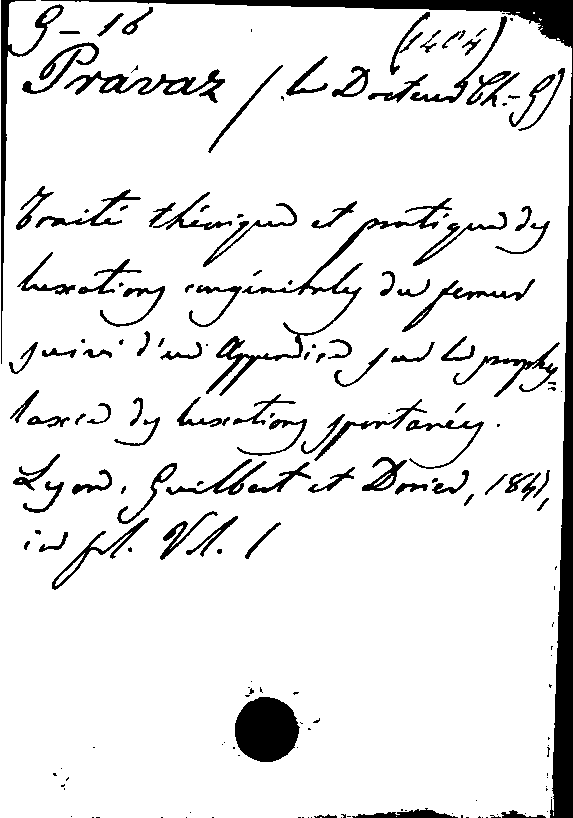 G-16
(1404)
Pravaz / le Docteur Ch.-G)
Traité théorique et pratique des
luxations congénitales du femur
suivi d'un Appendice sur la prophy=
laxie des luxations spontanées.
Lyon, Guilbert et Dorier, 1847,
in fol. Vol. 1